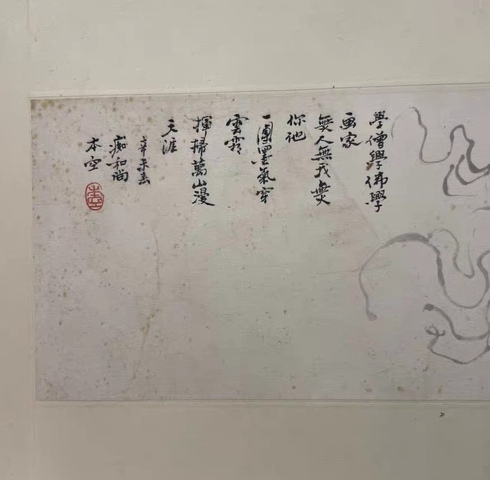 學僧學佛學
画家
無人無我無
你他
一團墨氣穿
雲霞
揮掃萬山漫
天涯
辛未春
痴和尚
本空